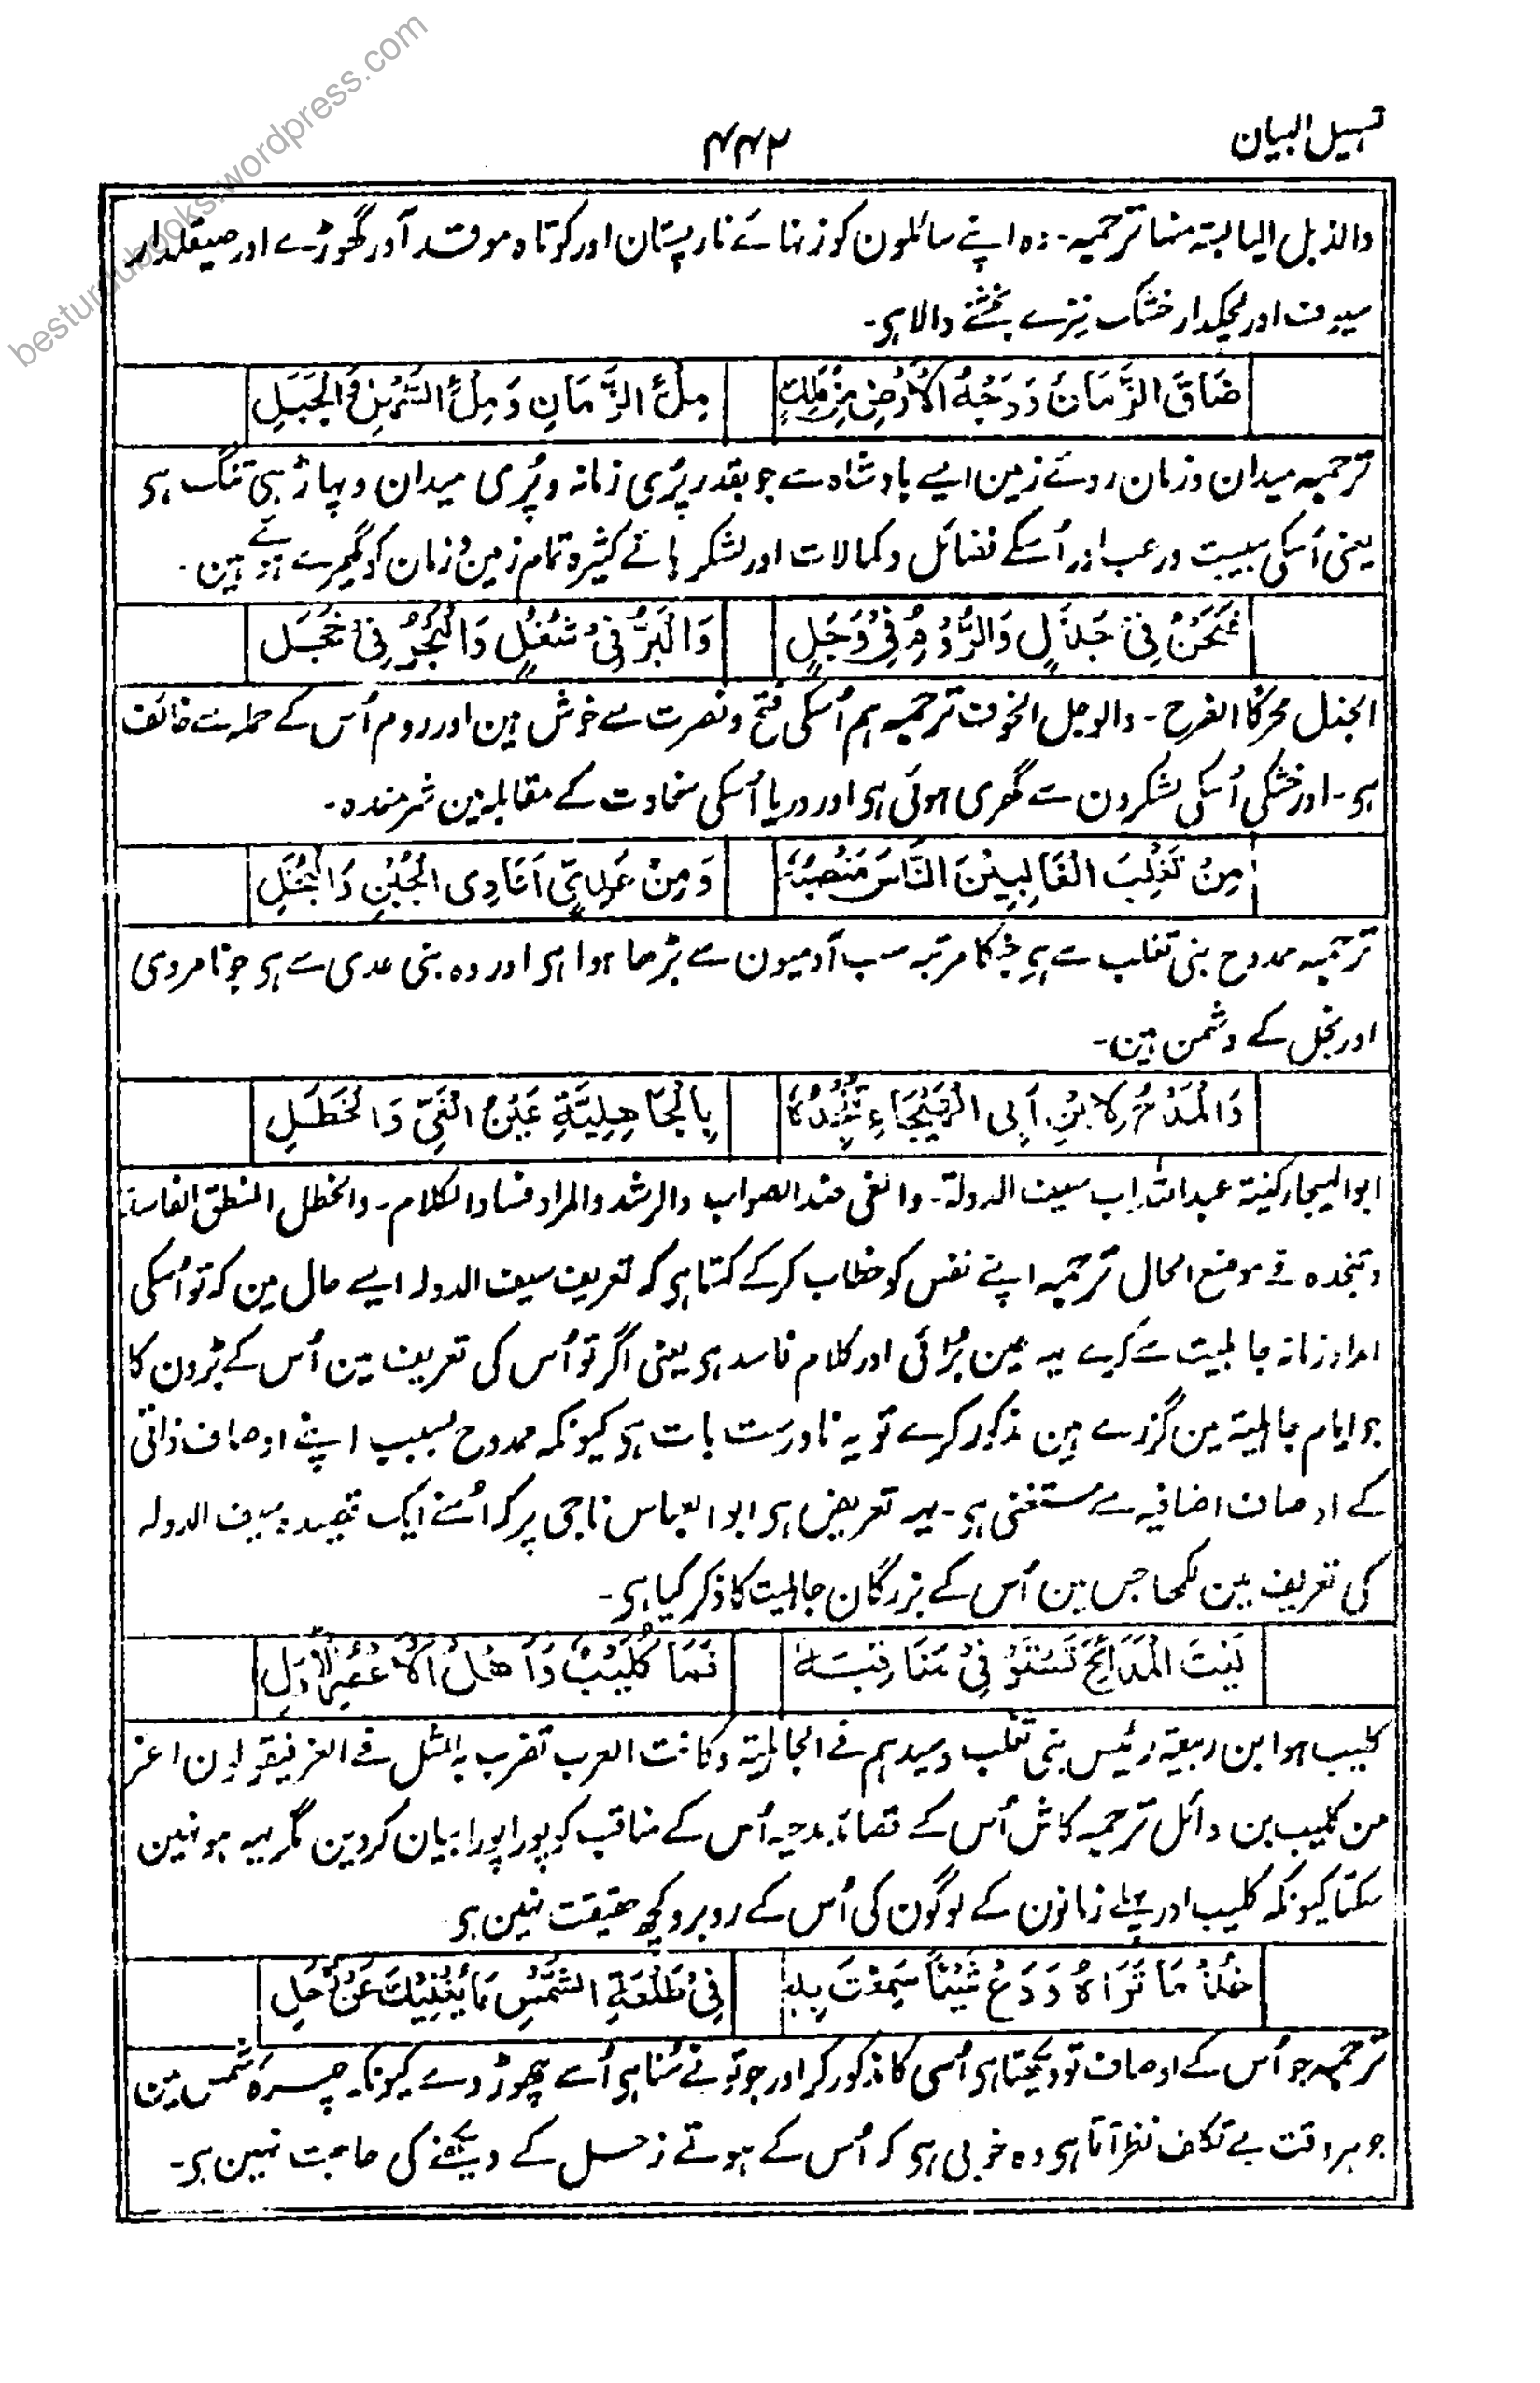 besturdubooks.wordpress.com
تسہیل البیان
۴۴۲
والذبل الیابستہ منہا ترجمہ۔ وہ اپنے سائلون کو زنہائے نارپستان اور کوتاہ مو قد آور گھوڑے اور صیقلدار
سیوف اور لچکدار خشک نیزے بخشنے والا ہی۔
ضَاقَ الزَّمَانُ وَوَجْهُ الْأَرْضِ مِنْ مَلِكٍ
مِلْءُ الزَّمَانِ وَمِلْءُ السَّهْلِ وَالْجَبَلِ
ترجمہ میدان وزمان روئے زمین ایسے بادشاہ سے جو بقدر پُری زمانہ و پُری میدان و پہاڑ ہی تنگ ہی
یعنی اُسکی ہیبت ورعب اور اُسکے فضائل وکمالات اور لشکر ہائے کثیرہ تمام زمین وزمان کو گھیرے ہوئے ہین۔
فَنَحْنُ فِيْ جَذَلٍ وَالرُّوْمُ فِيْ وَجَلٍ
وَالْبَرُّ فِيْ شُغُلٍ وَالْبَحْرُ فِيْ خَجَلِ
الجذل محرکا الفرح۔ والوجل الخوف ترجمہ ہم اُسکی فتح ونصرت سے خوش ہین اور روم اُس کے حملہ سے خائف
ہی۔ اور خشکی اُسکی لشکرون سے گھری ہوئی ہی اور دریا اُسکی سخاوت کے مقابلہ مین شرمندہ۔
مِنْ تَغْلِبَ الْغَالِبِيْنَ النَّاسَ مَنْصِبُهُ
وَمِنْ عَدِيٍّ اَعَادِى الْجُبْنِ وَالْبُخْلِ
ترجمہ ممدوح بنی تغلب سے ہی جنکا مرتبہ سب آدمیون سے بڑھا ہوا ہی اور وہ بنی عدی سے ہی جو نامردی
اور بخل کے دشمن ہین۔
وَالْمَدْحُ لِابْنِ اَبِى الْهَيْجَاءِ تُنْجِدُهُ
بِالْجَاهِلِيَّةِ عَيْنُ الْغَيِّ وَالْخَطَلِ
ابوالہیجار کنیتہ عبداللہ اب سیف الدولۃ۔ والغی ضد الصواب والرشد والمراد فساد الکلام۔ والخطل المنطق الفاسد
وتنجدہ فے موضع الحال ترجمہ اپنے نفس کو خطاب کرکے کہتا ہی کہ تعریف سیف الدولہ ایسے حال مین کہ تو اُسکی
امداد زمانہ جاہلیت سے کرے یہ عین بُرائی اور کلام فاسد ہی یعنی اگر تو اُس کی تعریف مین اُس کے بڑون کا
جو ایام جاہلیۃ مین گزرے ہین مذکور کرے تو یہ نادرست بات ہی کیونکہ ممدوح بسبب اپنے اوصاف ذاتی
کے اوصاف اضافیہ سے مستغنی ہی۔ یہہ تعریض ہی ابو العباس نامی پر کہ اُسنے ایک قصیدہ سیف الدولہ
کی تعریف مین لکھا جس مین اُس کے بزرگان جاہلیت کا ذکر کیا ہی۔
لَيْتَ الْمَدَائِحَ تَسْتَوْفِيْ مَنَاقِبَهُ
فَمَا كُلَيْبٌ وَاَهْلُ الْاَعْصُرِ الْاُوَلِ
کلیب ہو ابن ربیعۃ رئیس بنی تغلب وسیدہم فے الجاہلیۃ وکانت العرب تضرب بہ المثل فے العز فیقولون اعز
من کلیب بن وائل ترجمہ کاش اُس کے قصائد مدحیہ اُس کے مناقب کو پورا پورا بیان کردین مگر یہہ ہو نہین
سکتا کیونکہ کلیب اور پہلے زمانون کے لوگون کی اُس کے روبرو کچھ حقیقت نہین ہی
خُذْ مَا تَرَاهُ وَدَعْ شَيْئًا سَمِعْتَ بِهٖ
فِيْ طَلْعَةِ الشَّمْسِ مَا يُغْنِيْكَ عَنْ زُحَلِ
ترجمہ جو اُس کے اوصاف تو دیکھتا ہی اُسی کا مذکور کر اور جو تو نے سُنا ہی اُسے چھوڑ دے کیونکہ چہرۂ شمس مین
جو ہر وقت بے تکلف نظر آتا ہی وہ خوبی ہی کہ اُس کے ہوتے زحل کے دیکھنے کی حاجت نہین ہی۔